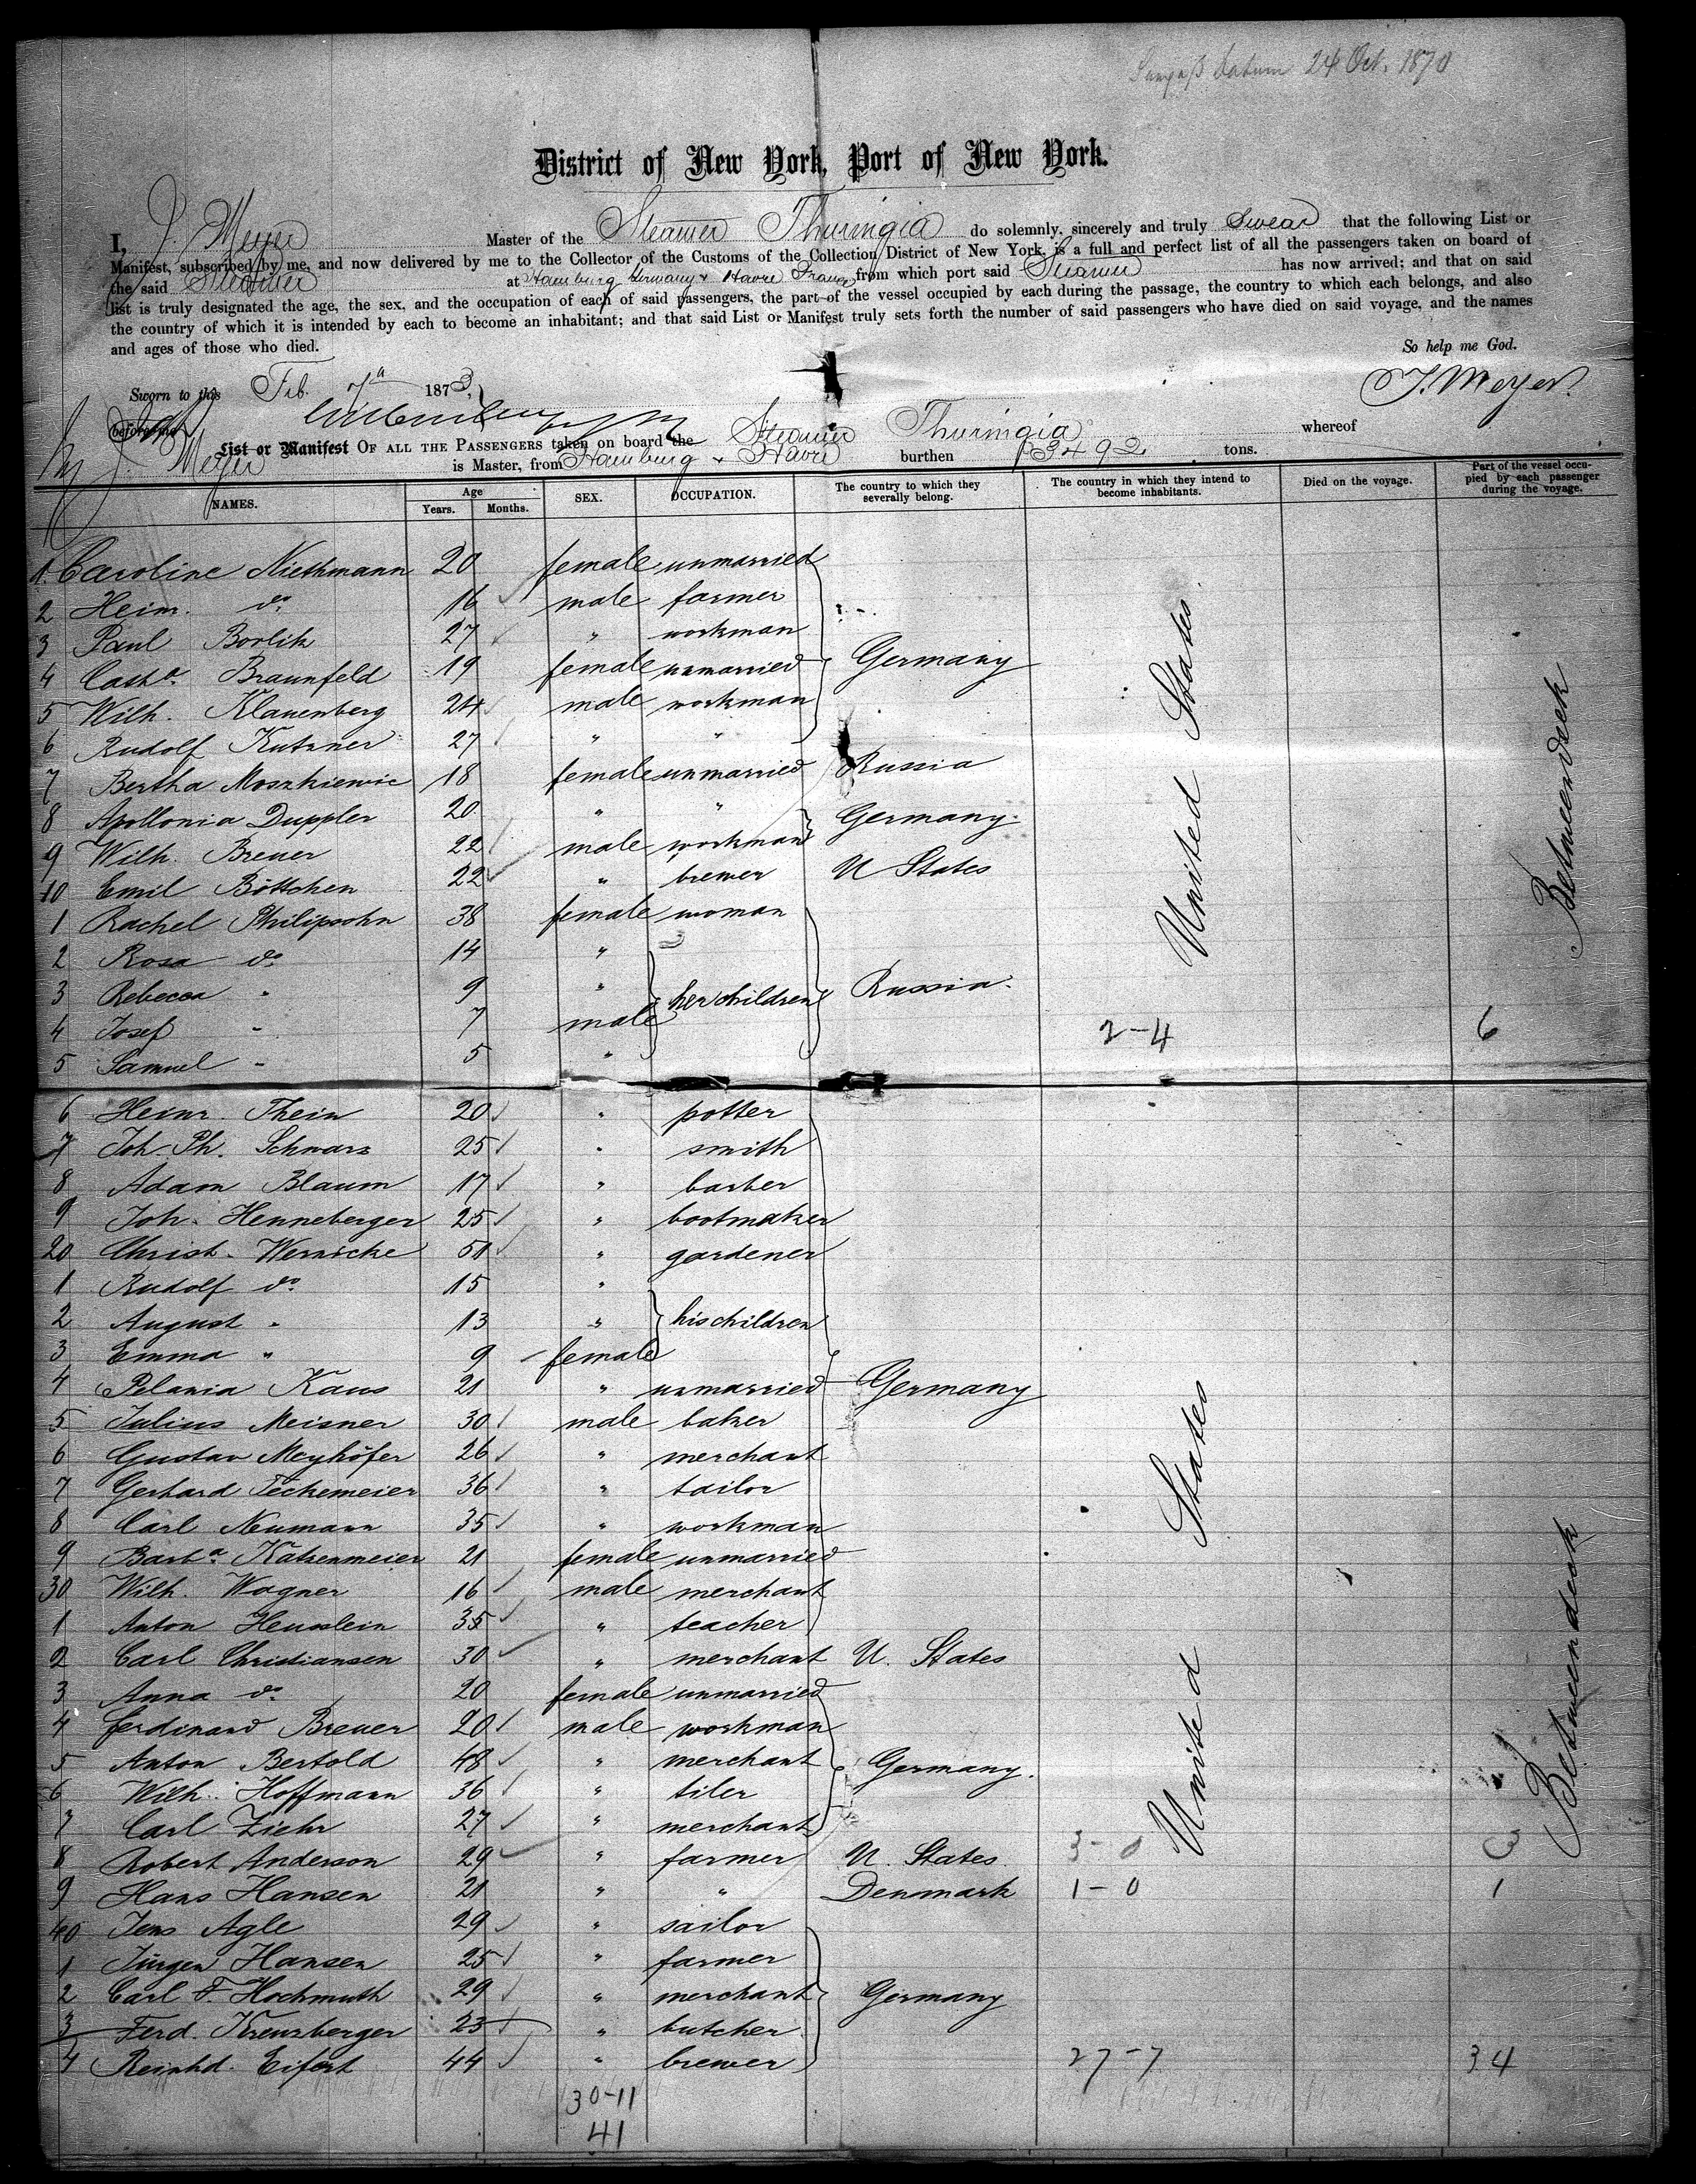 datum 24 Oct. 1870
District of New York, Port of New York.
I, J. Meyer Master of the Steamer Thuringia do solemnly, sincerely and truly Swear that the following List or
Manifest, subscribed by me, and now delivered by me to the Collector of the Customs of the Collection District of New York, is a full and perfect list of all the passengers taken on board of
the said Steamer at Hamburg Germany & Havre France from which port said Steamer has now arrived; and that on said
list is truly designated the age, the sex, and the occupation of each of said passengers, the part of the vessel occupied by each during the passage, the country to which each belongs, and also
the country of which it is intended by each to become an inhabitant; and that said List or Manifest truly sets forth the number of said passengers who have died on said voyage, and the names
and ages of those who died.
So help me God.
Sworn to this Feb. 7th 1873,
J. Meyer.
before me
List or Manifest OF ALL THE PASSENGERS taken on board the Steamer Thuringia whereof
J. Meyer is Master, from Hamburg & Havre burthen 3492 tons.
NAMES. Age Years. Months. SEX. OCCUPATION. The country to which they severally belong. The country in which they intend to become inhabitants. Died on the voyage. Part of the vessel occupied by each passenger during the voyage.
1 Caroline Niethmann 20 female unmarried
2 Heinr. do 16 male farmer
3 Paul Borlik 27 " workman
4 Cath.a Braunfeld 19 female unmarried Germany
5 Wilh. Klauenberg 24 male workman
6 Rudolf Kutzner 27 " "
7 Bertha Moszkiewic 18 female unmarried Russia
8 Apollonia Duppler 20 " " Germany.
9 Wilh. Breuer 22 male workman
10 Emil Böttchen 22 " brewer U States
1 Rachel Philipsohn 38 female woman
2 Rosa do 14 "
3 Rebecca " 9 " her children Russia.
4 Josef " 7 male 2-4 6
5 Samuel " 5 "
United States
Betweendeck
6 Heinr. Thein 20 " potter
7 Joh. Ph. Schwarz 25 " smith
8 Adam Blaum 17 " barber
9 Joh. Henneberger 25 " bootmaker
20 Christ. Wernicke 51 " gardener
1 Rudolf do 15 "
2 August " 13 " his children
3 Emma " 9 female
4 Pelania Kaus 21 " unmarried Germany
5 Julius Meisner 30 male baker
6 Gustav Meyhöfer 26 " merchant
7 Gerhard Teckemeier 36 " tailor
8 Carl Neumann 35 " workman
9 Barb.a Katzenmeier 21 female unmarried
30 Wilh. Wagner 16 male merchant
1 Anton Heusslein 35 " teacher
2 Carl Christiansen 30 " merchant U. States
3 Anna do 20 female unmarried
4 Ferdinand Breuer 20 male workman
5 Anton Bertold 48 " merchant Germany.
6 Wilh. Hoffmann 36 " tiler
7 Carl Ziehr 27 " merchant
8 Robert Anderson 29 " farmer U. States. 3-0 3
9 Hans Hansen 21 " " Denmark 1-0 1
40 Jens Agle 29 " sailor
1 Jürgen Hansen 25 " farmer
2 Carl F. Hochmuth 29 " merchant Germany
3 Ferd. Kreuzberger 23 " butcher
4 Reinhd. Eifert 44 " brewer 27-7 34
United States
Betweendeck
30-11
41